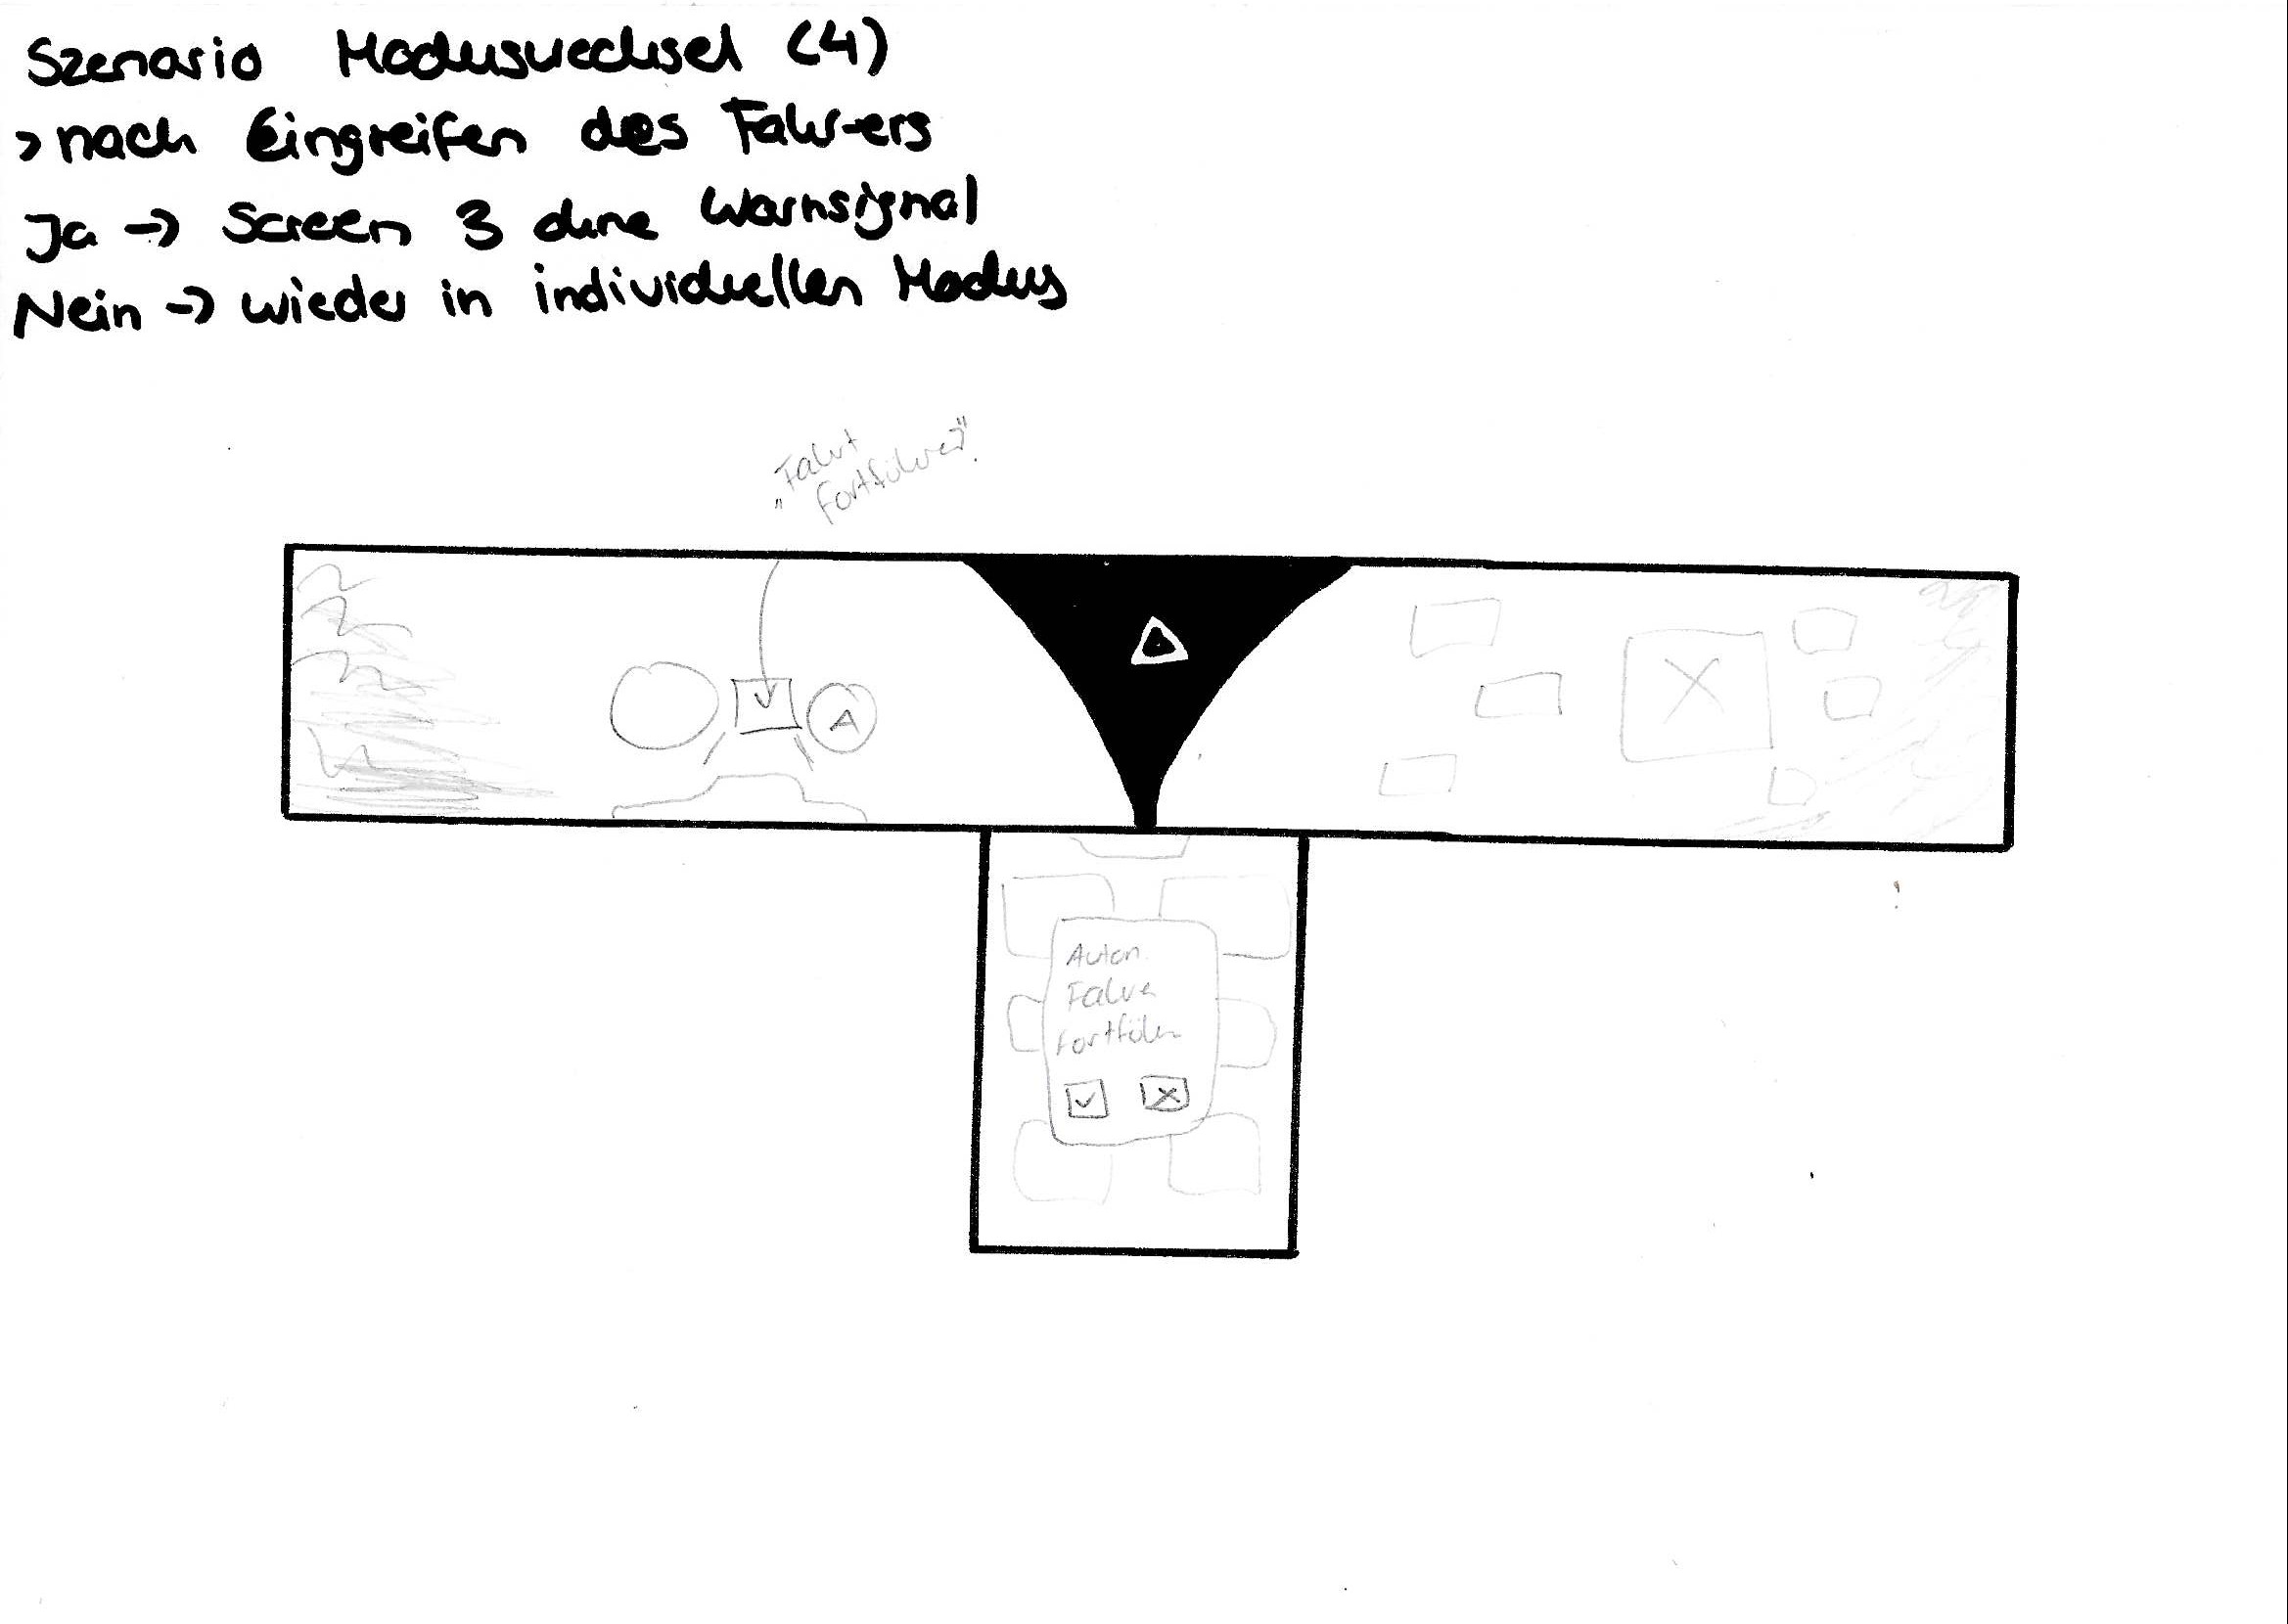 Szenario Moduswechsel (4)
> nach Eingreifen des Fahrers
Ja -> Screen 3 ohne Warnsignal
Nein -> wieder in individuellen Modus
„Fahrt
fortführen?"
A
Auton.
Fahre
fortführ